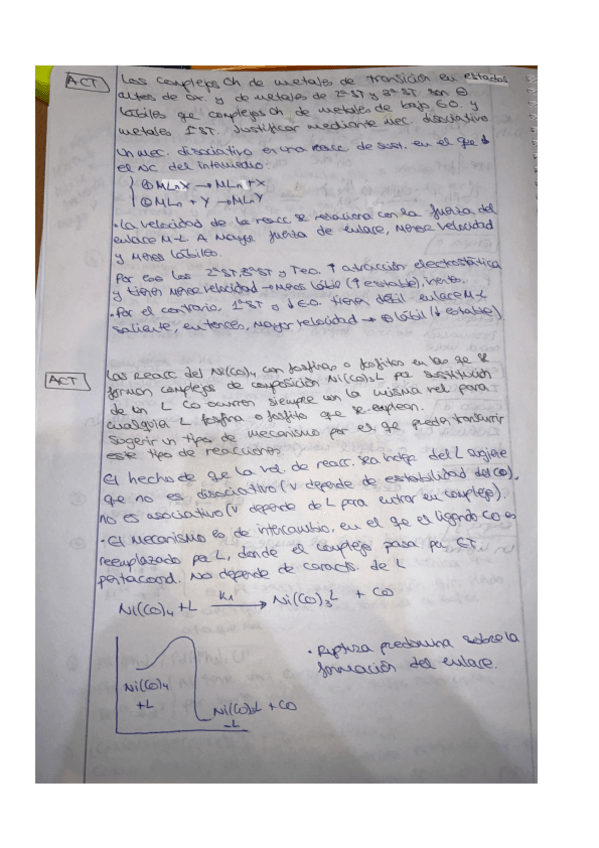 ACT Los complejos Oh de metales de transición en estados
altos de ox. y de metales de 2ª ST y 3ª ST son ⊖
lábiles que complejos Oh de metales de bajo E.O. y
metales 1ª ST. Justificar mediante mec. disociativo
Un mec. disociativo es una reacc de sust. en el que ↓
el NC del intermedio:
① MLnX → MLn + X
② MLn + Y → MLnY
· La velocidad de la reacc se relaciona con la fuerza del
enlace M-L. A mayor fuerza de enlace, menor velocidad
y menos lábiles.
Por eso los 2ª ST, 3ª ST y ↑ E.O. ↑ atracción electrostática
y tienen menor velocidad → menos lábil (↑ estable), inerte.
· Por el contrario, 1ª ST y ↓ E.O. tienen débil enlace M-L
saliente, entonces, mayor velocidad → ⊕ lábil (↓ estable)
ACT Las Reacc del Ni(CO)4 con fosfinas o fosfitos en las que se
forman complejos de composición Ni(CO)3L por sustitución
de un L CO ocurren siempre con la misma vel. para
cualquier L fosfina o fosfito que se emplean.
Sugerir un tipo de mecanismo por el que pueden transcurrir
este tipo de reacciones.
El hecho de que la vel. de reacc. sea indep. del L sugiere
que no es disociativo (v depende de estabilidad del CO).
no es asociativo (v depende de L para entrar en complejo).
· El mecanismo es de intercambio, en el que el ligando CO es
reemplazado por L, donde el complejo pasa por ET
pentacoord. No depende de caracts. de L
Ni(CO)4 + L K1 → Ni(CO)3L + CO
· Ruptura predomina sobre la
formación del enlace.
Ni(CO)4
+L
Ni(CO)3L + CO
-L